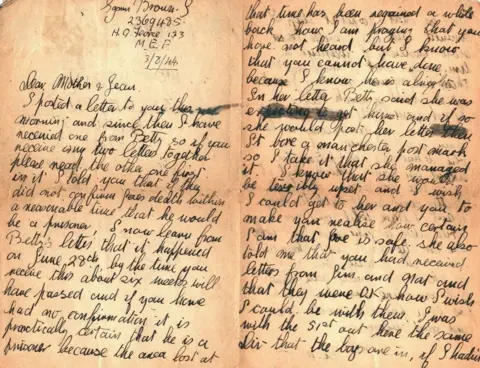 Sgmn Brown. S
2369485
H.Q. Force 133
M.E.F.
3/7/44.
Dear Mother & Jean,
I posted a letter to you this
morning and since then I have
received one from Betty so if you
receive my two letters together
please read the other one first.
in it I told you that if they
did not confirm Joes death within
a reasonable time that he would
be a prisoner. I now learn from
Betty's letter that it happened
on June 28th by the time you
receive this about six weeks will
have passed and if you have
had no confirmation it is
practically certain that he is a
prisoner because the area lost at
that time has been regained a while
back. Now I am praying that you
have not heard, but I know
that you cannot have done
because I know he is alright.
In her letter Betty said she was
expecting to get home and if so
she would post her letter then
It bore a manchester post mark
so I take it that she managed
it. I know that she would
be terribly upset and I wish
I could get to her and you to
make you realise how certain
I am that Joe is safe. she also
told me that you had received
letters from Jim and and
that they were O.K. how I wish
I could be with them. I was
with the 51st out here the same
div that the boys are in, if I hadn't